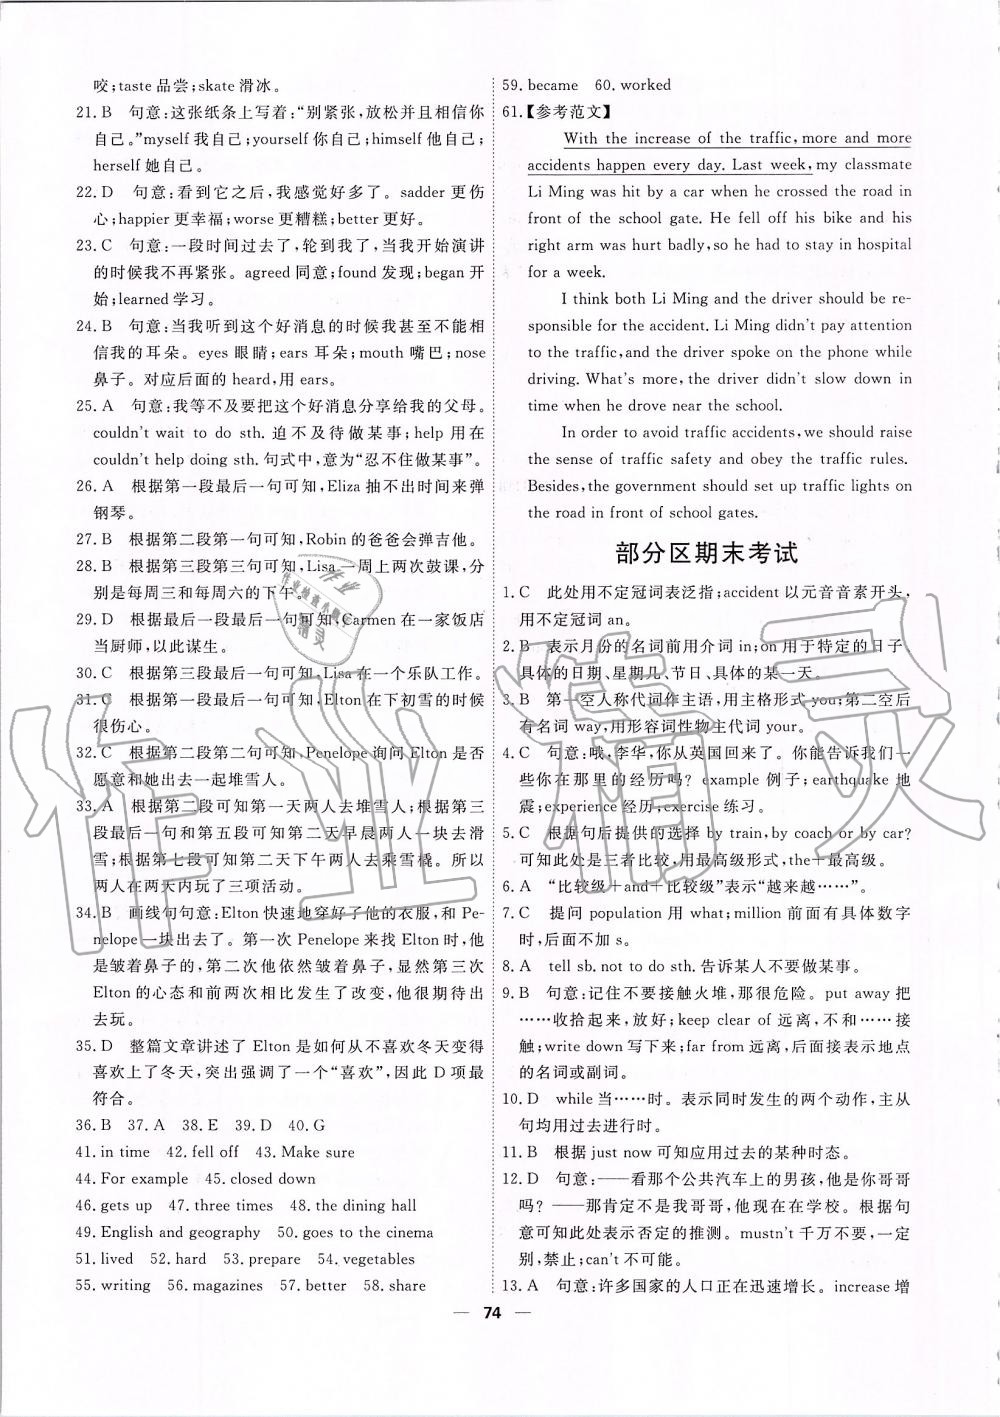 咬;taste 品尝;skate 滑冰。
21. B 句意:这张纸条上写着:“别紧张,放松并且相信你
自己。”myself 我自己;yourself 你自己;himself 他自己;
herself 她自己。
22. D 句意:看到它之后,我感觉好多了。sadder 更伤
心;happier 更幸福;worse 更糟糕;better 更好。
23. C 句意:一段时间过去了,轮到我了,当我开始演讲
的时候我不再紧张。agreed 同意;found 发现;began 开
始;learned 学习。
24. B 句意:当我听到这个好消息的时候我甚至不能相
信我的耳朵。eyes 眼睛;ears 耳朵;mouth 嘴巴;nose
鼻子。对应后面的 heard,用 ears。
25. A 句意:我等不及要把这个好消息分享给我的父母。
couldn't wait to do sth. 迫不及待做某事;help 用在
couldn't help doing sth. 句式中,意为“忍不住做某事”。
26. A 根据第一段最后一句可知,Eliza 抽不出时间来弹
钢琴。
27. B 根据第二段第一句可知,Robin 的爸爸会弹吉他。
28. B 根据第三段第三句可知,Lisa 一周上两次鼓课,分
别是每周三和每周六的下午。
29. D 根据最后一段最后一句可知,Carmen 在一家饭店
当厨师,以此谋生。
30. C 根据第三段最后一句可知,Lisa 在一个乐队工作。
31. C 根据第一段最后一句可知,Elton 在下初雪的时候
很伤心。
32. C 根据第二段第二句可知,Penelope 询问 Elton 是否
愿意和她出去一起堆雪人。
33. A 根据第二段可知第一天两人去堆雪人;根据第三
段最后一句和第五段可知第二天早晨两人一起去滑
雪;根据第七段可知第二天下午两人去乘雪橇。所以
两人在两天内玩了三项活动。
34. B 画线句句意:Elton 快速地穿好了他的衣服,和 Pe-
nelope 一块出去了。第一次 Penelope 来找 Elton 时,他
是皱着鼻子的,第二次他依然皱着鼻子,显然第三次
Elton 的心态和前两次相比发生了改变,他很期待出
去玩。
35. D 整篇文章讲述了 Elton 是如何从不喜欢冬天变得
喜欢上了冬天,突出强调了一个“喜欢”,因此 D 项最
符合。
36. B 37. A 38. E 39. D 40. G
41. in time 42. fell off 43. Make sure
44. For example 45. closed down
46. gets up 47. three times 48. the dining hall
49. English and geography 50. goes to the cinema
51. lived 52. hard 53. prepare 54. vegetables
55. writing 56. magazines 57. better 58. share
59. became 60. worked
61.【参考范文】
With the increase of the traffic, more and more
accidents happen every day. Last week, my classmate
Li Ming was hit by a car when he crossed the road in
front of the school gate. He fell off his bike and his
right arm was hurt badly, so he had to stay in hospital
for a week.
I think both Li Ming and the driver should be re-
sponsible for the accident. Li Ming didn't pay attention
to the traffic, and the driver spoke on the phone while
driving. What's more, the driver didn't slow down in
time when he drove near the school.
In order to avoid traffic accidents, we should raise
the sense of traffic safety and obey the traffic rules.
Besides, the government should set up traffic lights on
the road in front of school gates.
部分区期末考试
1. C 此处用不定冠词表泛指;accident 以元音音素开头,
用不定冠词 an。
2. B 表示月份的名词前用介词 in;on 用于特定的日子、
具体的日期、星期几、节日、具体的某一天。
3. B 第一空人称代词作主语,用主格形式 you;第二空后
有名词 way,用形容词性物主代词 your。
4. C 句意:哦,李华,你从英国回来了。你能告诉我们一
些你在那里的经历吗? example 例子;earthquake 地
震;experience 经历;exercise 练习。
5. C 根据句后提供的选择 by train, by coach or by car?
可知此处是三者比较,用最高级形式,the+最高级。
6. A “比较级+and+比较级”表示“越来越……”。
7. C 提问 population 用 what;million 前面有具体数字
时,后面不加 s。
8. A tell sb. not to do sth. 告诉某人不要做某事。
9. B 句意:记住不要接触火堆,那很危险。put away 把
……收拾起来,放好;keep clear of 远离,不和……接
触;write down 写下来;far from 远离,后面接表示地点
的名词或副词。
10. D while 当……时。表示同时发生的两个动作,主从
句均用过去进行时。
11. B 根据 just now 可知应用过去的某种时态。
12. D 句意:——看那个公共汽车上的男孩,他是你哥哥
吗? ——那肯定不是我哥哥,他现在在学校。根据句
意可知此处表示否定的推测。mustn't 千万不要,一定
别,禁止;can't 不可能。
13. A 句意:许多国家的人口正在迅速增长。increase 增
— 74 —
作业精灵
作业检查小帮手
作业精灵